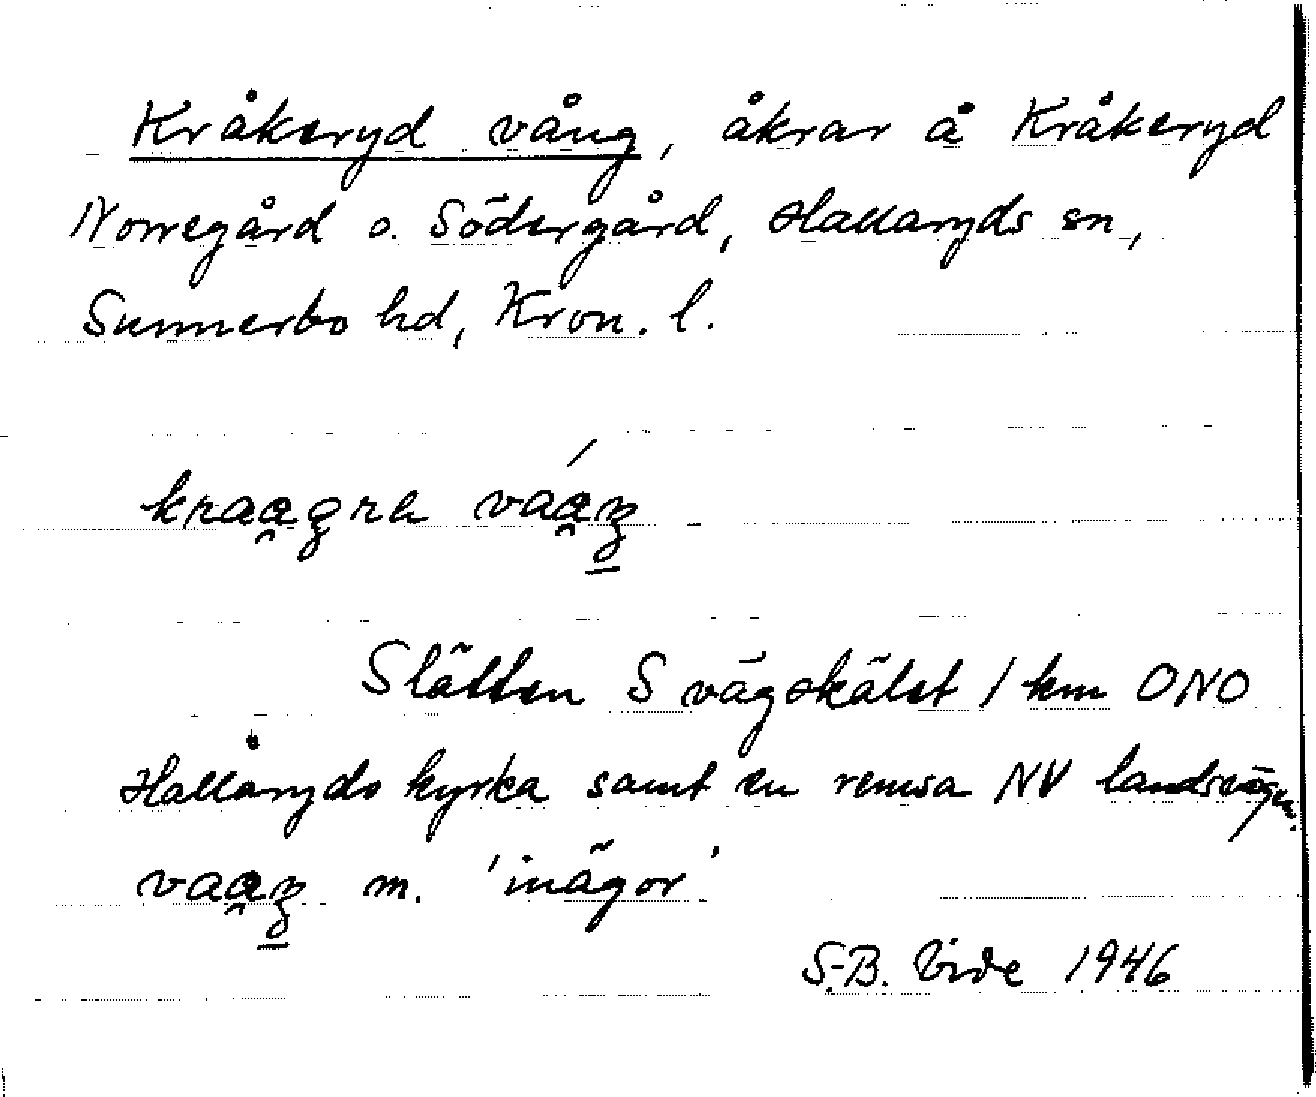 Kråkeryd vång, åkrar å Kråkeryd
Norregård o. Södergård, Hallaryds sn,
Sunnerbo hd, Kron. l.
Slätten S vägskälet 1 km ONO
Hallaryds kyrka samt en remsa NV landsvägen.
m. 'inägor'
S.-B. Vide 1946